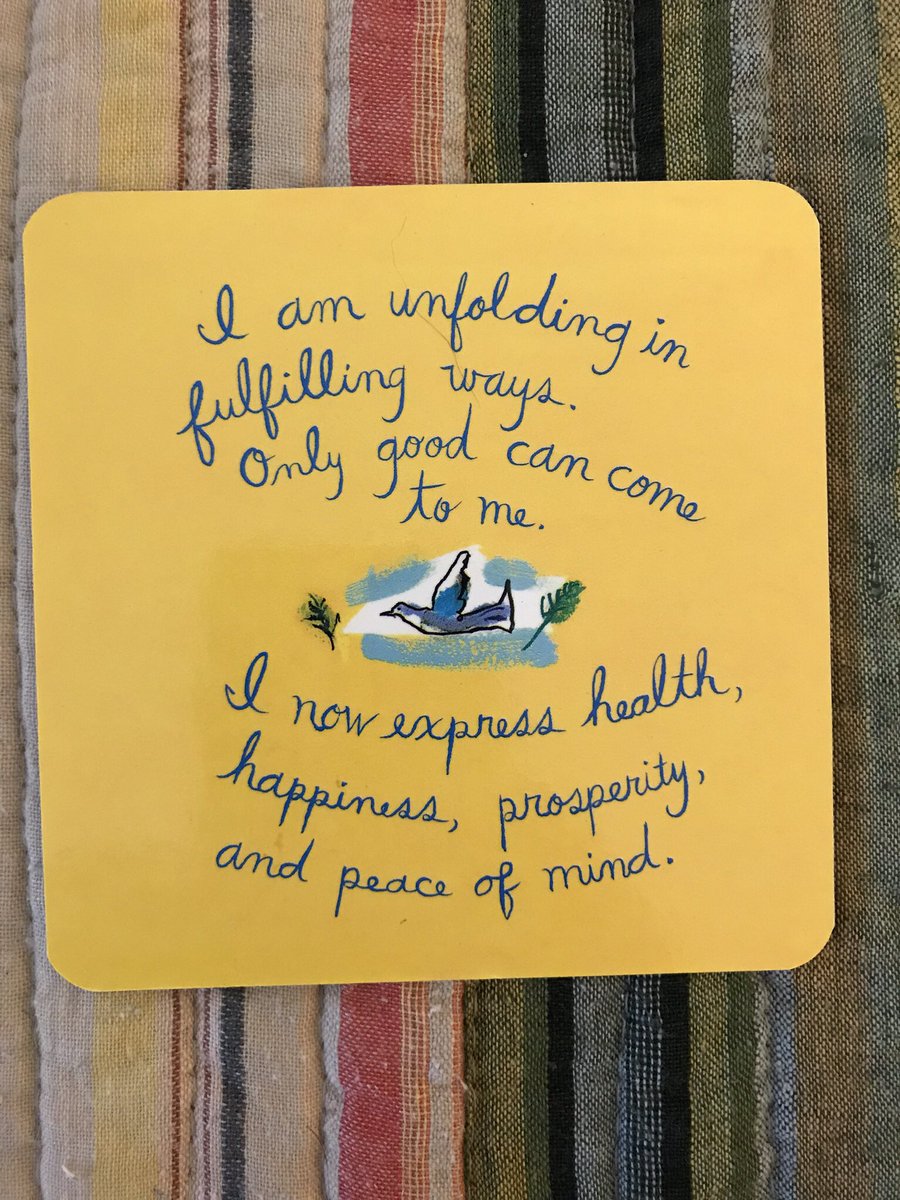 I am unfolding in
fulfilling ways.
Only good can come
to me.
I now express health,
happiness, prosperity,
and peace of mind.